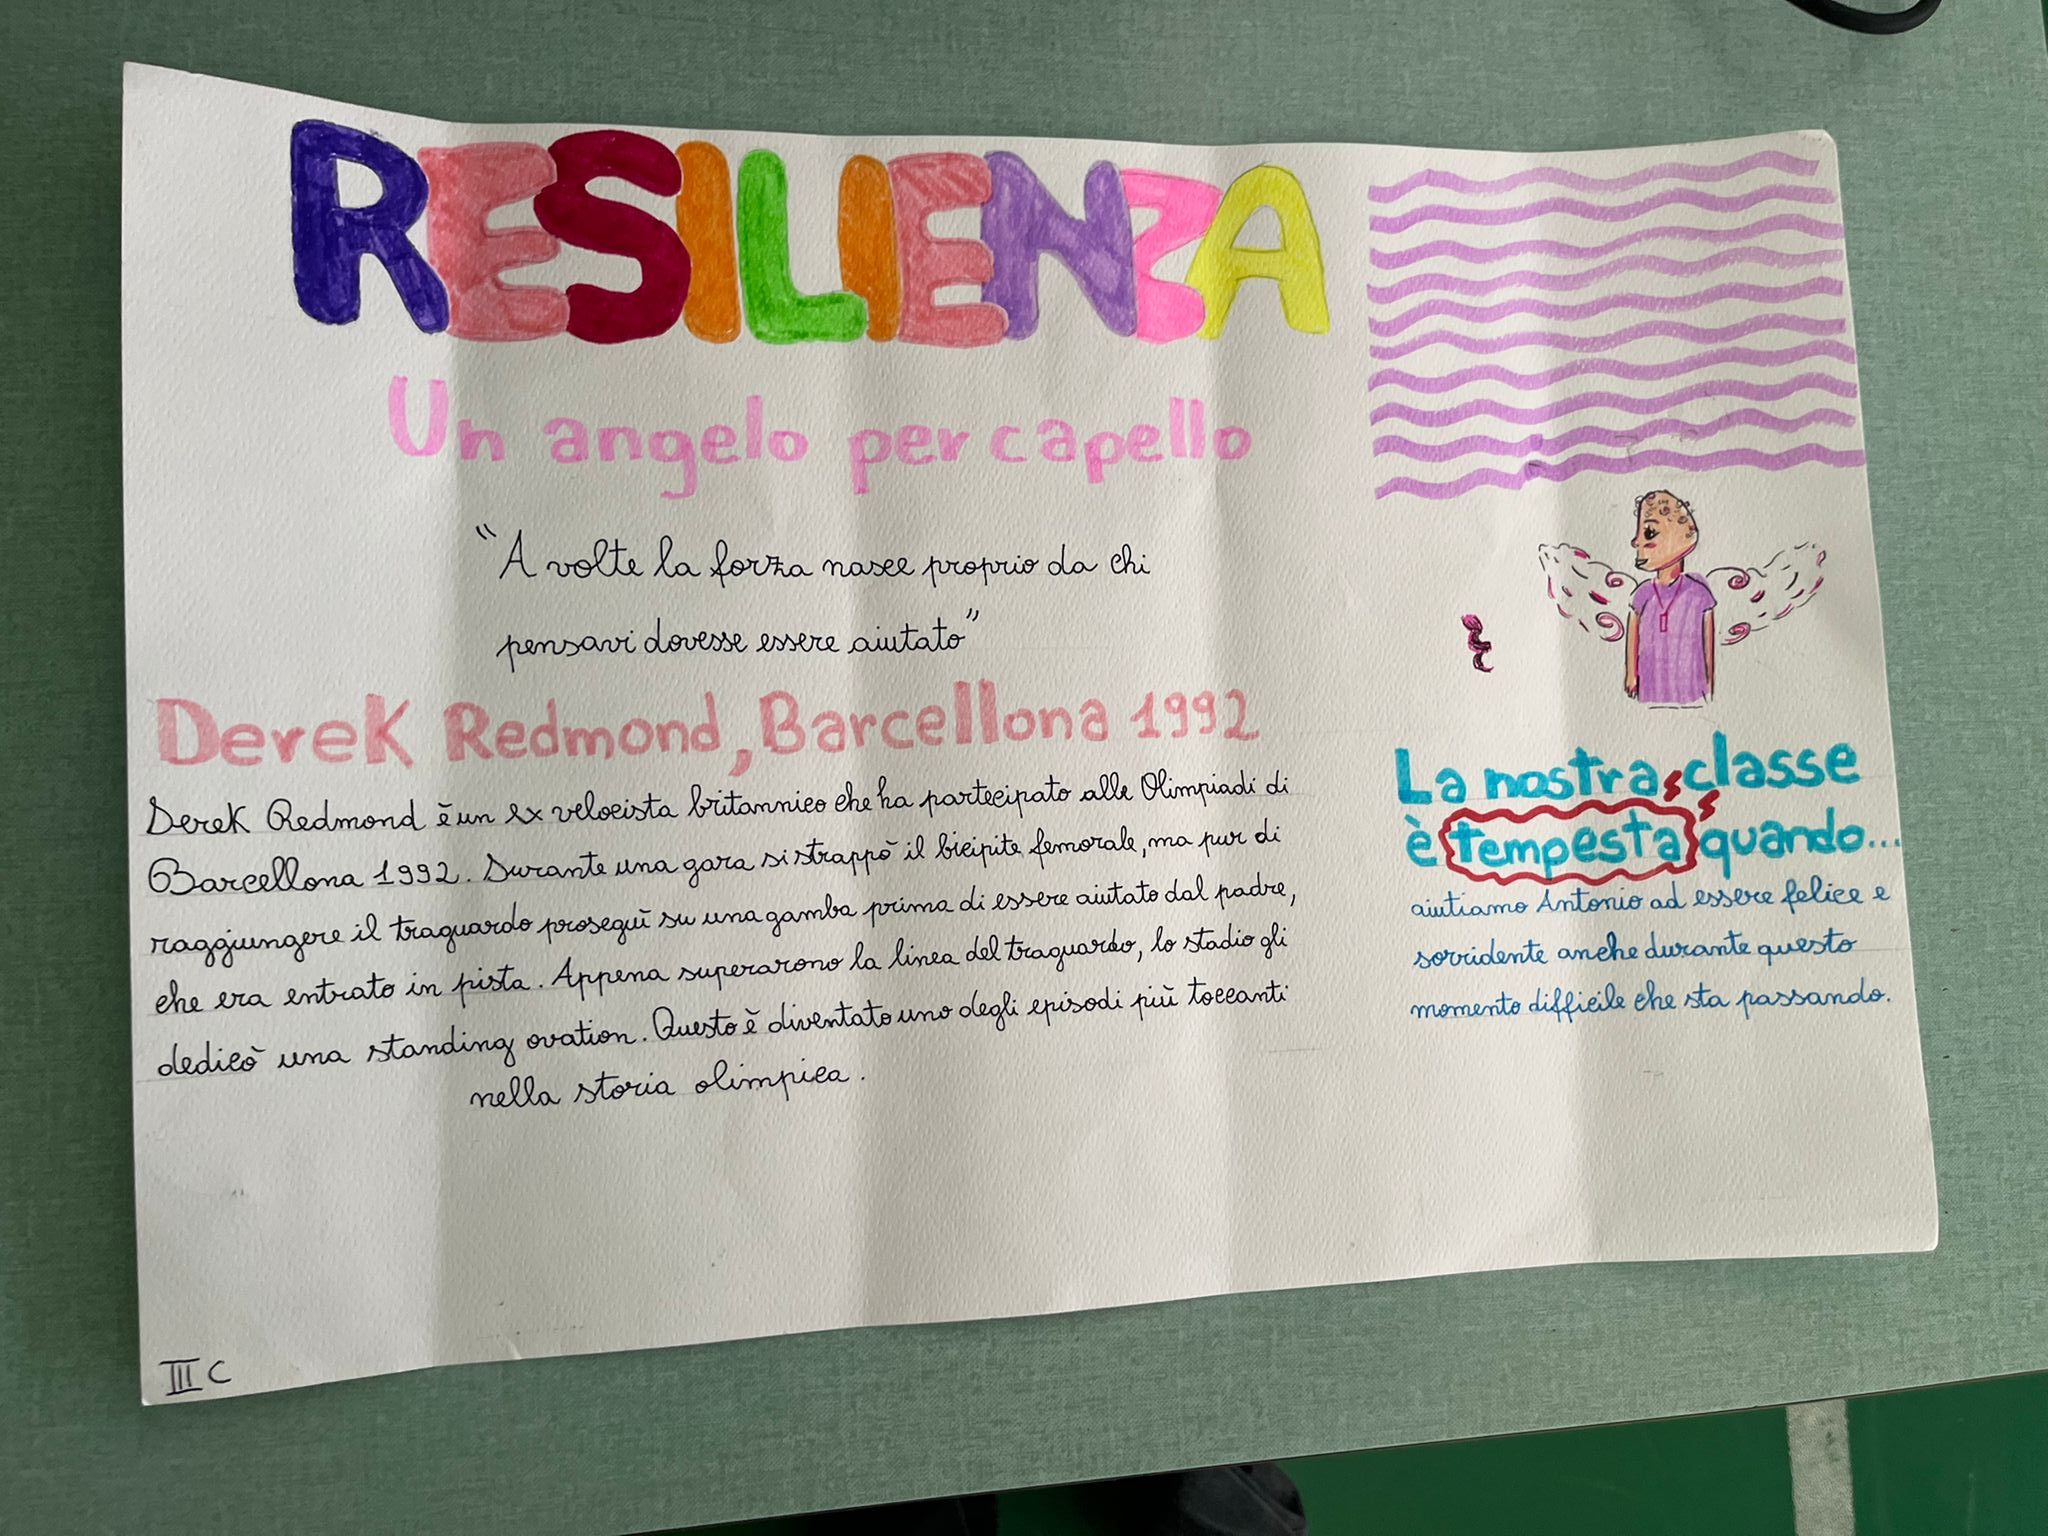 RESILIENZA
Un angelo per capello
"A volte la forza nasce proprio da chi
pensavi dovesse essere aiutato"
Derek Redmond, Barcellona 1992
Derek Redmond è un ex velocista britannico che ha partecipato alle Olimpiadi di
Barcellona 1992. Durante una gara si strappò il bicipite femorale, ma pur di
raggiungere il traguardo proseguì su una gamba prima di essere aiutato dal padre,
che era entrato in pista. Appena superarono la linea del traguardo, lo stadio gli
dedicò una standing ovation. Questo è diventato uno degli episodi più toccanti
nella storia olimpica.
La nostra classe
è tempesta quando...
aiutiamo Antonio ad essere felice e
sorridente anche durante questo
momento difficile che sta passando.
III C